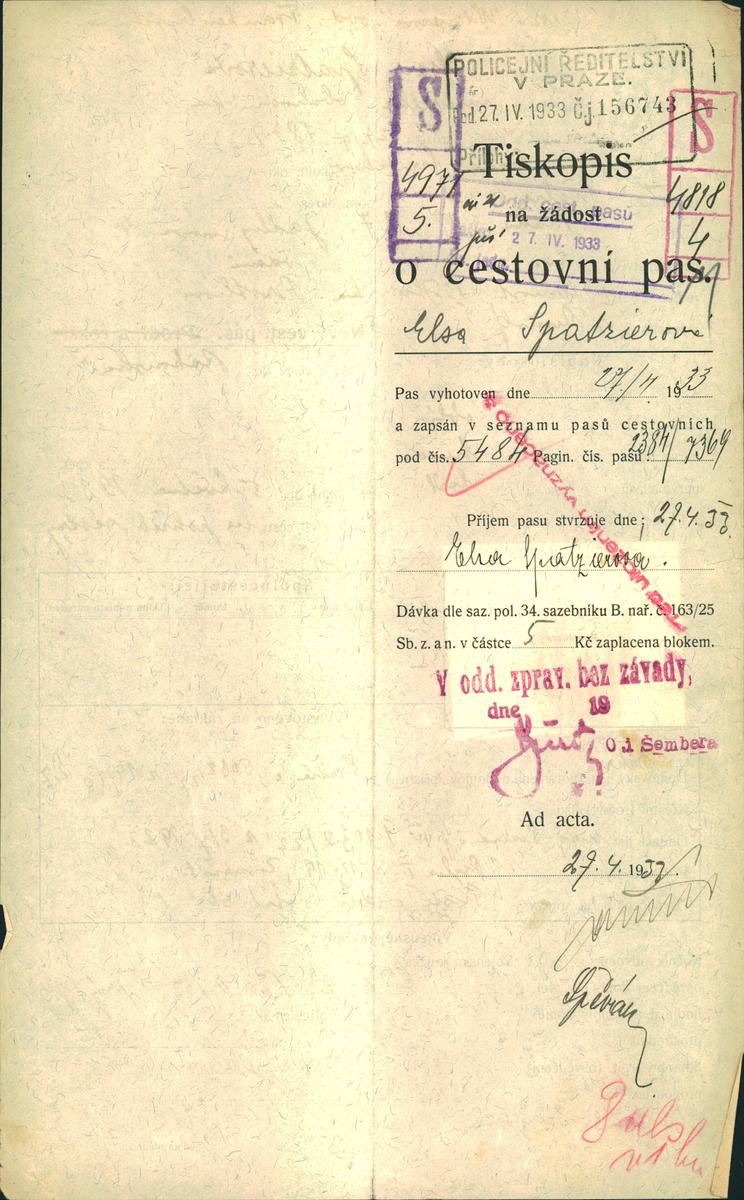 POLICEJNÍ ŘEDITELSTVÍ
V PRAZE.
Pod. 27. IV. 1933 Č.j. 156743
Přílohy
S
4971
5.
S
4818
4
Tiskopis
na žádost
Odd. cest. pasů
27. IV. 1933
o cestovní pas.
Elsa Spatzierová
Pas vyhotoven dne 27/4 1933
a zapsán v seznamu pasů cestovních
pod čís. 5484 Pagin. čís. pasu 2384/7369
Příjem pasu stvrzuje dne: 27.4.33.
Elsa Spatzierova.
Dávka dle saz. pol. 34. sazebníku B. nař. č. 163/25
Sb. z. a n. v částce 5 Kč zaplacena blokem.
V odd. zprav. bez závady,
dne 19
O.i Šembera
Ad acta.
27.4.1933.